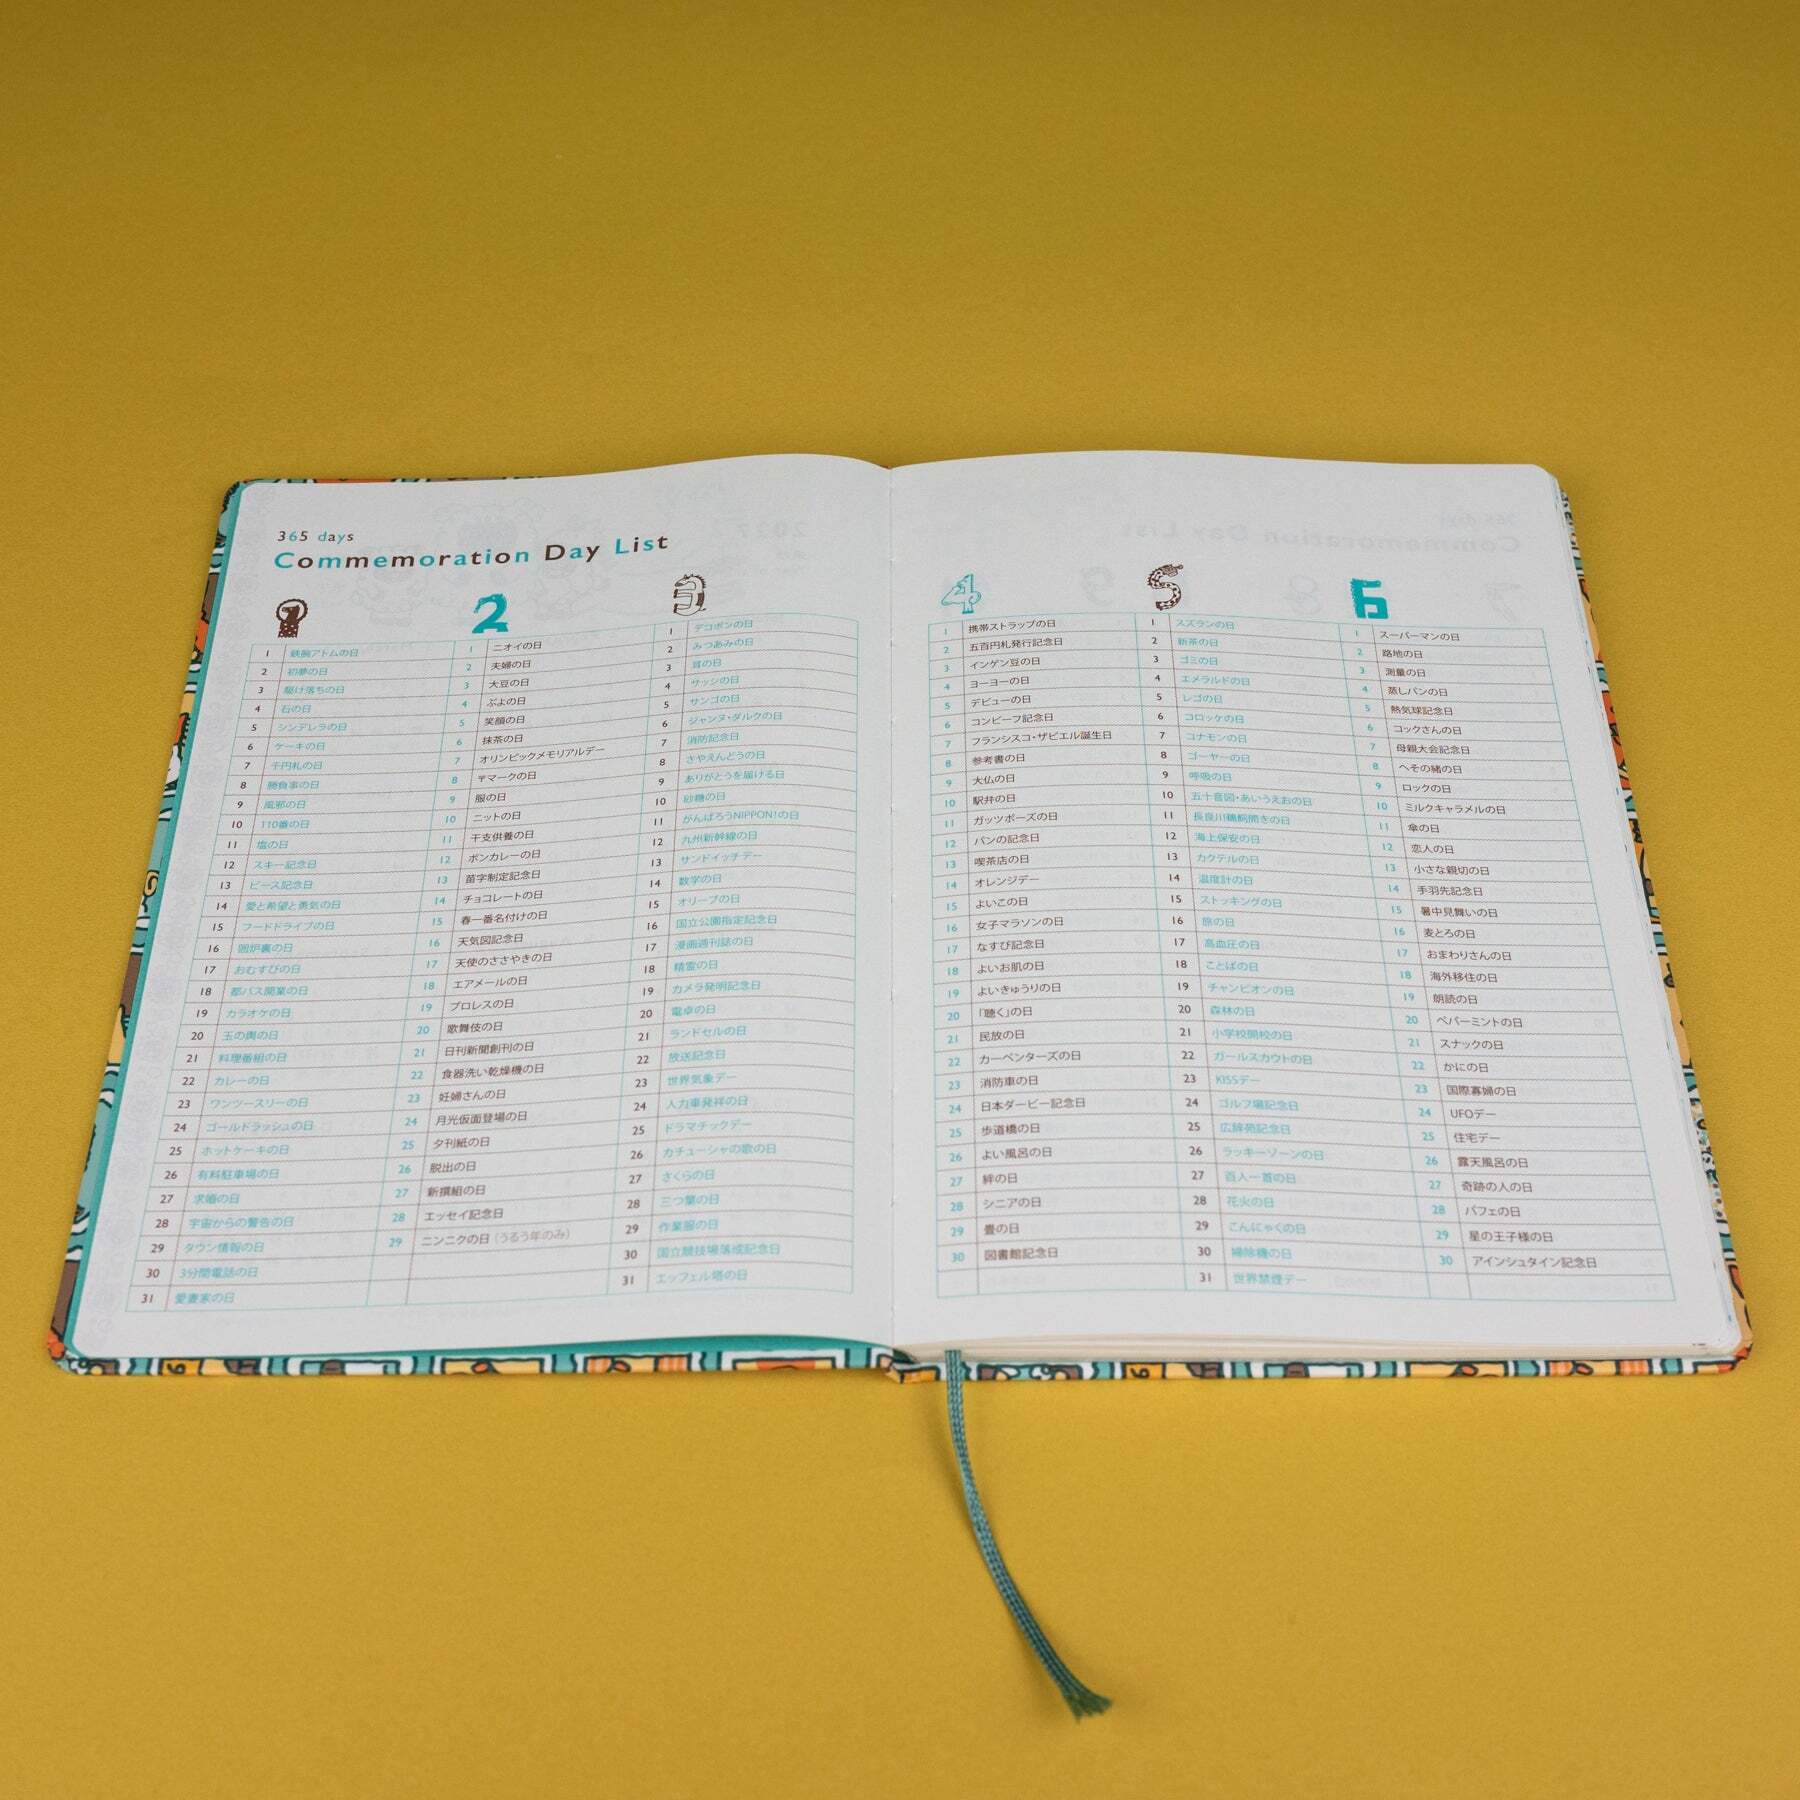 365 days
Commemoration Day List
1
1 鉄腕アトムの日
2 初夢の日
3 駆け落ちの日
4 石の日
5 シンデレラの日
6 ケーキの日
7 千円札の日
8 勝負事の日
9 風邪の日
10 110番の日
11 塩の日
12 スキー記念日
13 ピース記念日
14 愛と希望と勇気の日
15 フードドライブの日
16 囲炉裏の日
17 おむすびの日
18 都バス開業の日
19 カラオケの日
20 玉の輿の日
21 料理番組の日
22 カレーの日
23 ワンツースリーの日
24 ゴールドラッシュの日
25 ホットケーキの日
26 有料駐車場の日
27 求婚の日
28 宇宙からの警告の日
29 タウン情報の日
30 3分間電話の日
31 愛妻家の日
2
1 ニオイの日
2 夫婦の日
3 大豆の日
4 ぷよの日
5 笑顔の日
6 抹茶の日
7 オリンピックメモリアルデー
8 〒マークの日
9 服の日
10 ニットの日
11 干支供養の日
12 ボンカレーの日
13 苗字制定記念日
14 チョコレートの日
15 春一番名付けの日
16 天気図記念日
17 天使のささやきの日
18 エアメールの日
19 プロレスの日
20 歌舞伎の日
21 日刊新聞創刊の日
22 食器洗い乾燥機の日
23 妊婦さんの日
24 月光仮面登場の日
25 夕刊紙の日
26 脱出の日
27 新撰組の日
28 エッセイ記念日
29 ニンニクの日（うるう年のみ）
3
1 デコポンの日
2 みつあみの日
3 耳の日
4 サッシの日
5 サンゴの日
6 ジャンヌ・ダルクの日
7 消防記念日
8 さやえんどうの日
9 ありがとうを届ける日
10 砂糖の日
11 がんばろうNIPPON!の日
12 九州新幹線の日
13 サンドイッチデー
14 数学の日
15 オリーブの日
16 国立公園指定記念日
17 漫画週刊誌の日
18 精霊の日
19 カメラ発明記念日
20 電卓の日
21 ランドセルの日
22 放送記念日
23 世界気象デー
24 人力車発祥の日
25 ドラマチックデー
26 カチューシャの歌の日
27 さくらの日
28 三つ葉の日
29 作業服の日
30 国立競技場落成記念日
31 エッフェル塔の日
4
1 携帯ストラップの日
2 五百円札発行記念日
3 インゲン豆の日
4 ヨーヨーの日
5 デビューの日
6 コンビーフ記念日
7 フランシスコ・ザビエル誕生日
8 参考書の日
9 大仏の日
10 駅弁の日
11 ガッツポーズの日
12 パンの記念日
13 喫茶店の日
14 オレンジデー
15 よいこの日
16 女子マラソンの日
17 なすび記念日
18 よいお肌の日
19 よいきゅうりの日
20 「聴く」の日
21 民放の日
22 カーペンターズの日
23 消防車の日
24 日本ダービー記念日
25 歩道橋の日
26 よい風呂の日
27 絆の日
28 シニアの日
29 畳の日
30 図書館記念日
5
1 スズランの日
2 新茶の日
3 ゴミの日
4 エメラルドの日
5 レゴの日
6 コロッケの日
7 コナモンの日
8 ゴーヤーの日
9 呼吸の日
10 五十音図・あいうえおの日
11 長良川鵜飼開きの日
12 海上保安の日
13 カクテルの日
14 温度計の日
15 ストッキングの日
16 旅の日
17 高血圧の日
18 ことばの日
19 チャンピオンの日
20 森林の日
21 小学校開校の日
22 ガールスカウトの日
23 KISSデー
24 ゴルフ場記念日
25 広辞苑記念日
26 ラッキーゾーンの日
27 百人一首の日
28 花火の日
29 こんにゃくの日
30 掃除機の日
31 世界禁煙デー
6
1 スーパーマンの日
2 路地の日
3 測量の日
4 蒸しパンの日
5 熱気球記念日
6 コックさんの日
7 母親大会記念日
8 へその緒の日
9 ロックの日
10 ミルクキャラメルの日
11 傘の日
12 恋人の日
13 小さな親切の日
14 手羽先記念日
15 暑中見舞いの日
16 麦とろの日
17 おまわりさんの日
18 海外移住の日
19 朗読の日
20 ペパーミントの日
21 スナックの日
22 かにの日
23 国際寡婦の日
24 UFOデー
25 住宅デー
26 露天風呂の日
27 奇跡の人の日
28 パフェの日
29 星の王子様の日
30 アインシュタイン記念日